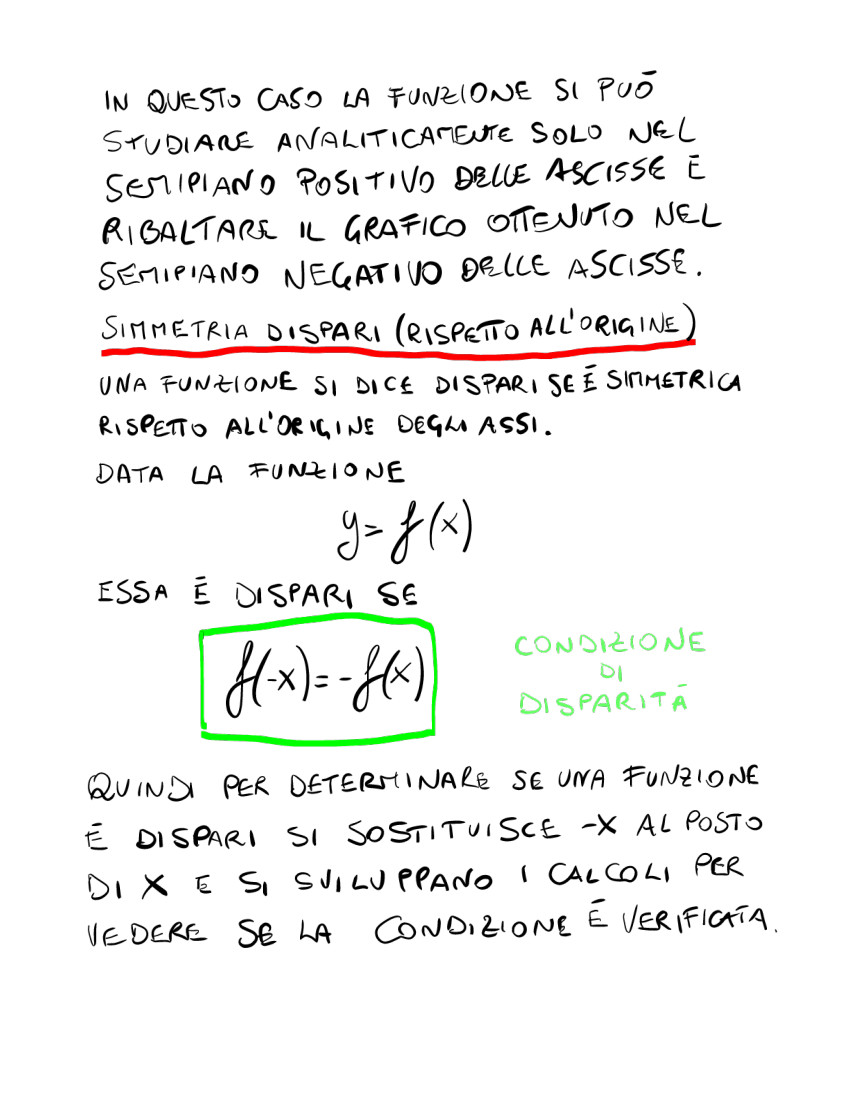 IN QUESTO CASO LA FUNZIONE SI PUÒ
STUDIARE ANALITICAMENTE SOLO NEL
SEMIPIANO POSITIVO DELLE ASCISSE E
RIBALTARE IL GRAFICO OTTENUTO NEL
SEMIPIANO NEGATIVO DELLE ASCISSE.
SIMMETRIA DISPARI (RISPETTO ALL'ORIGINE)
UNA FUNZIONE SI DICE DISPARI SE È SIMMETRICA
RISPETTO ALL'ORIGINE DEGLI ASSI.
DATA LA FUNZIONE
y = f(x)
ESSA È DISPARI SE
f(-x) = -f(x)
CONDIZIONE
DI
DISPARITÀ
QUINDI PER DETERMINARE SE UNA FUNZIONE
È DISPARI SI SOSTITUISCE -X AL POSTO
DI X E SI SVILUPPANO I CALCOLI PER
VEDERE SE LA CONDIZIONE È VERIFICATA.